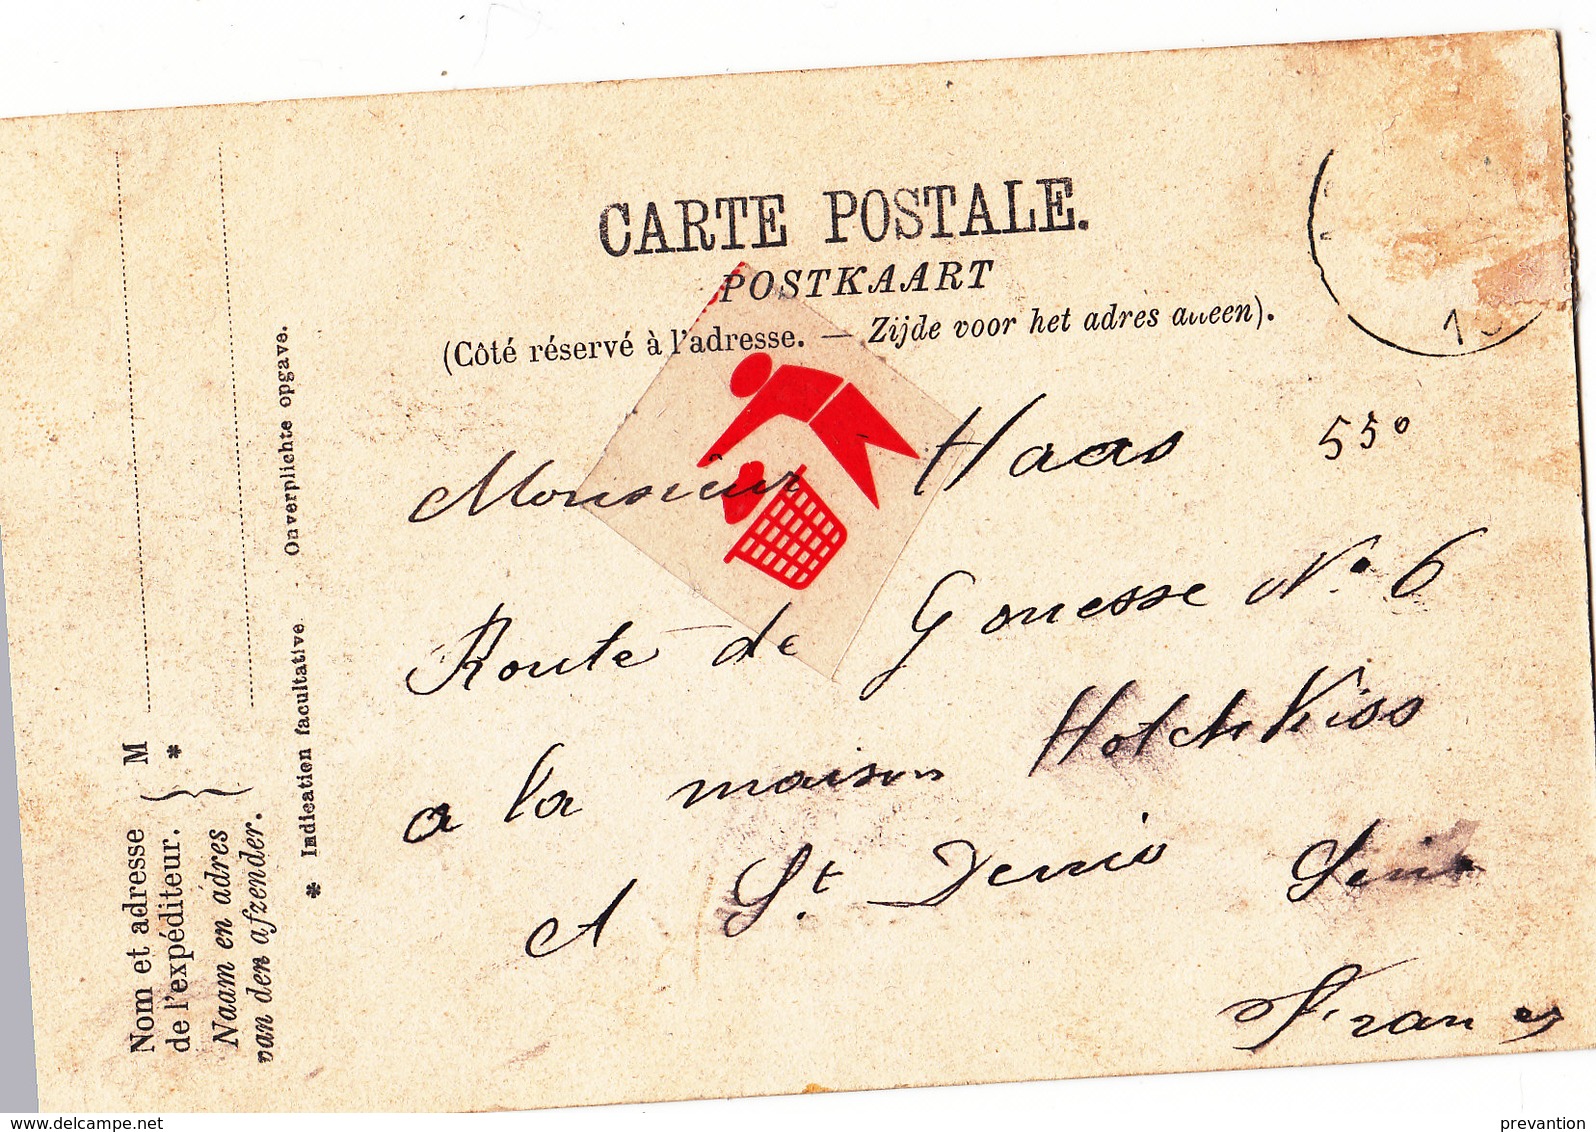 CARTE POSTALE.
POSTKAART
(Côté réservé à l'adresse. — Zijde voor het adres alleen).
Monsieur Haas 55°
Route de Gonesse N° 6
a la maison Hotchkiss
A St. Denis Seine
France
Nom et adresse
de l'expéditeur.
Naam en adres
van den afzender.
M
*
* Indication facultative - Onverplichte opgave.
www.delcampe.net
prevantion